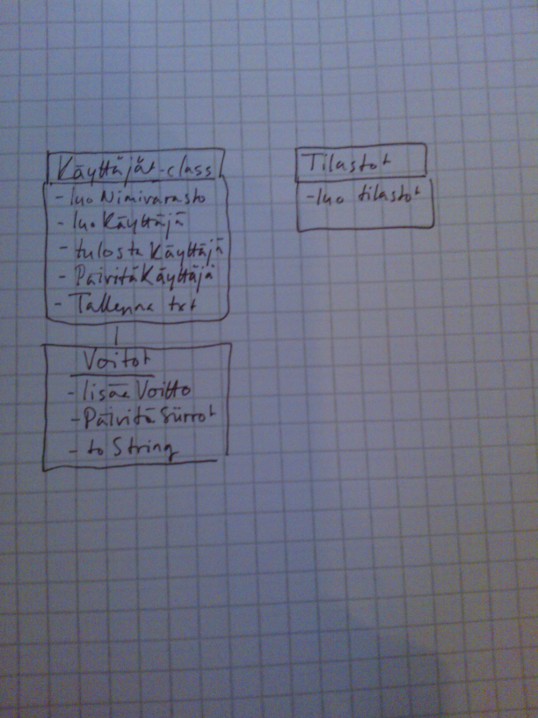 Käyttäjät-class
- luo Nimivarasto
- luo Käyttäjä
- tulosta Käyttäjä
- Päivitä Käyttäjä
- Tallenna txt
Voitot
- lisää Voitto
- Päivitä Siirrot
- to String
Tilastot
- luo tilastot